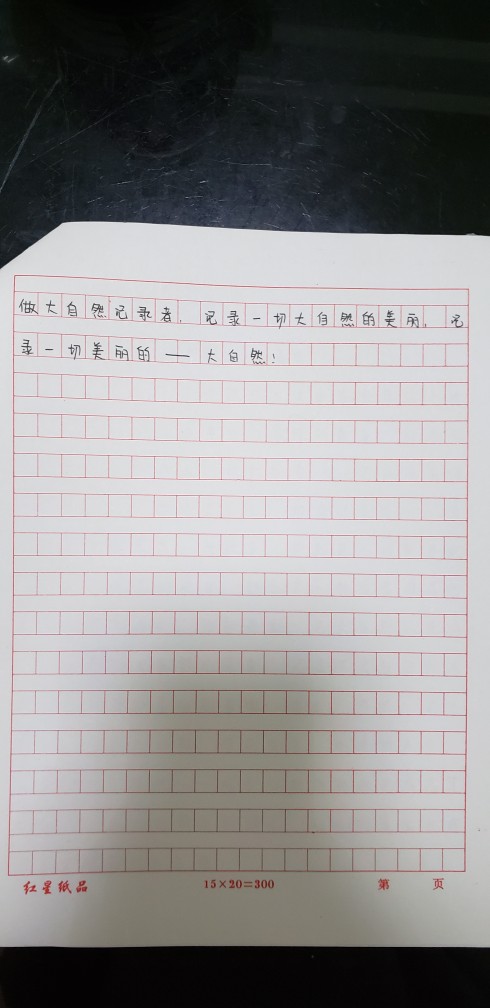 做大自然记录者，记录一切大自然的美丽，记
录一切美丽的——大自然！
红星纸品 15×20=300 第 页